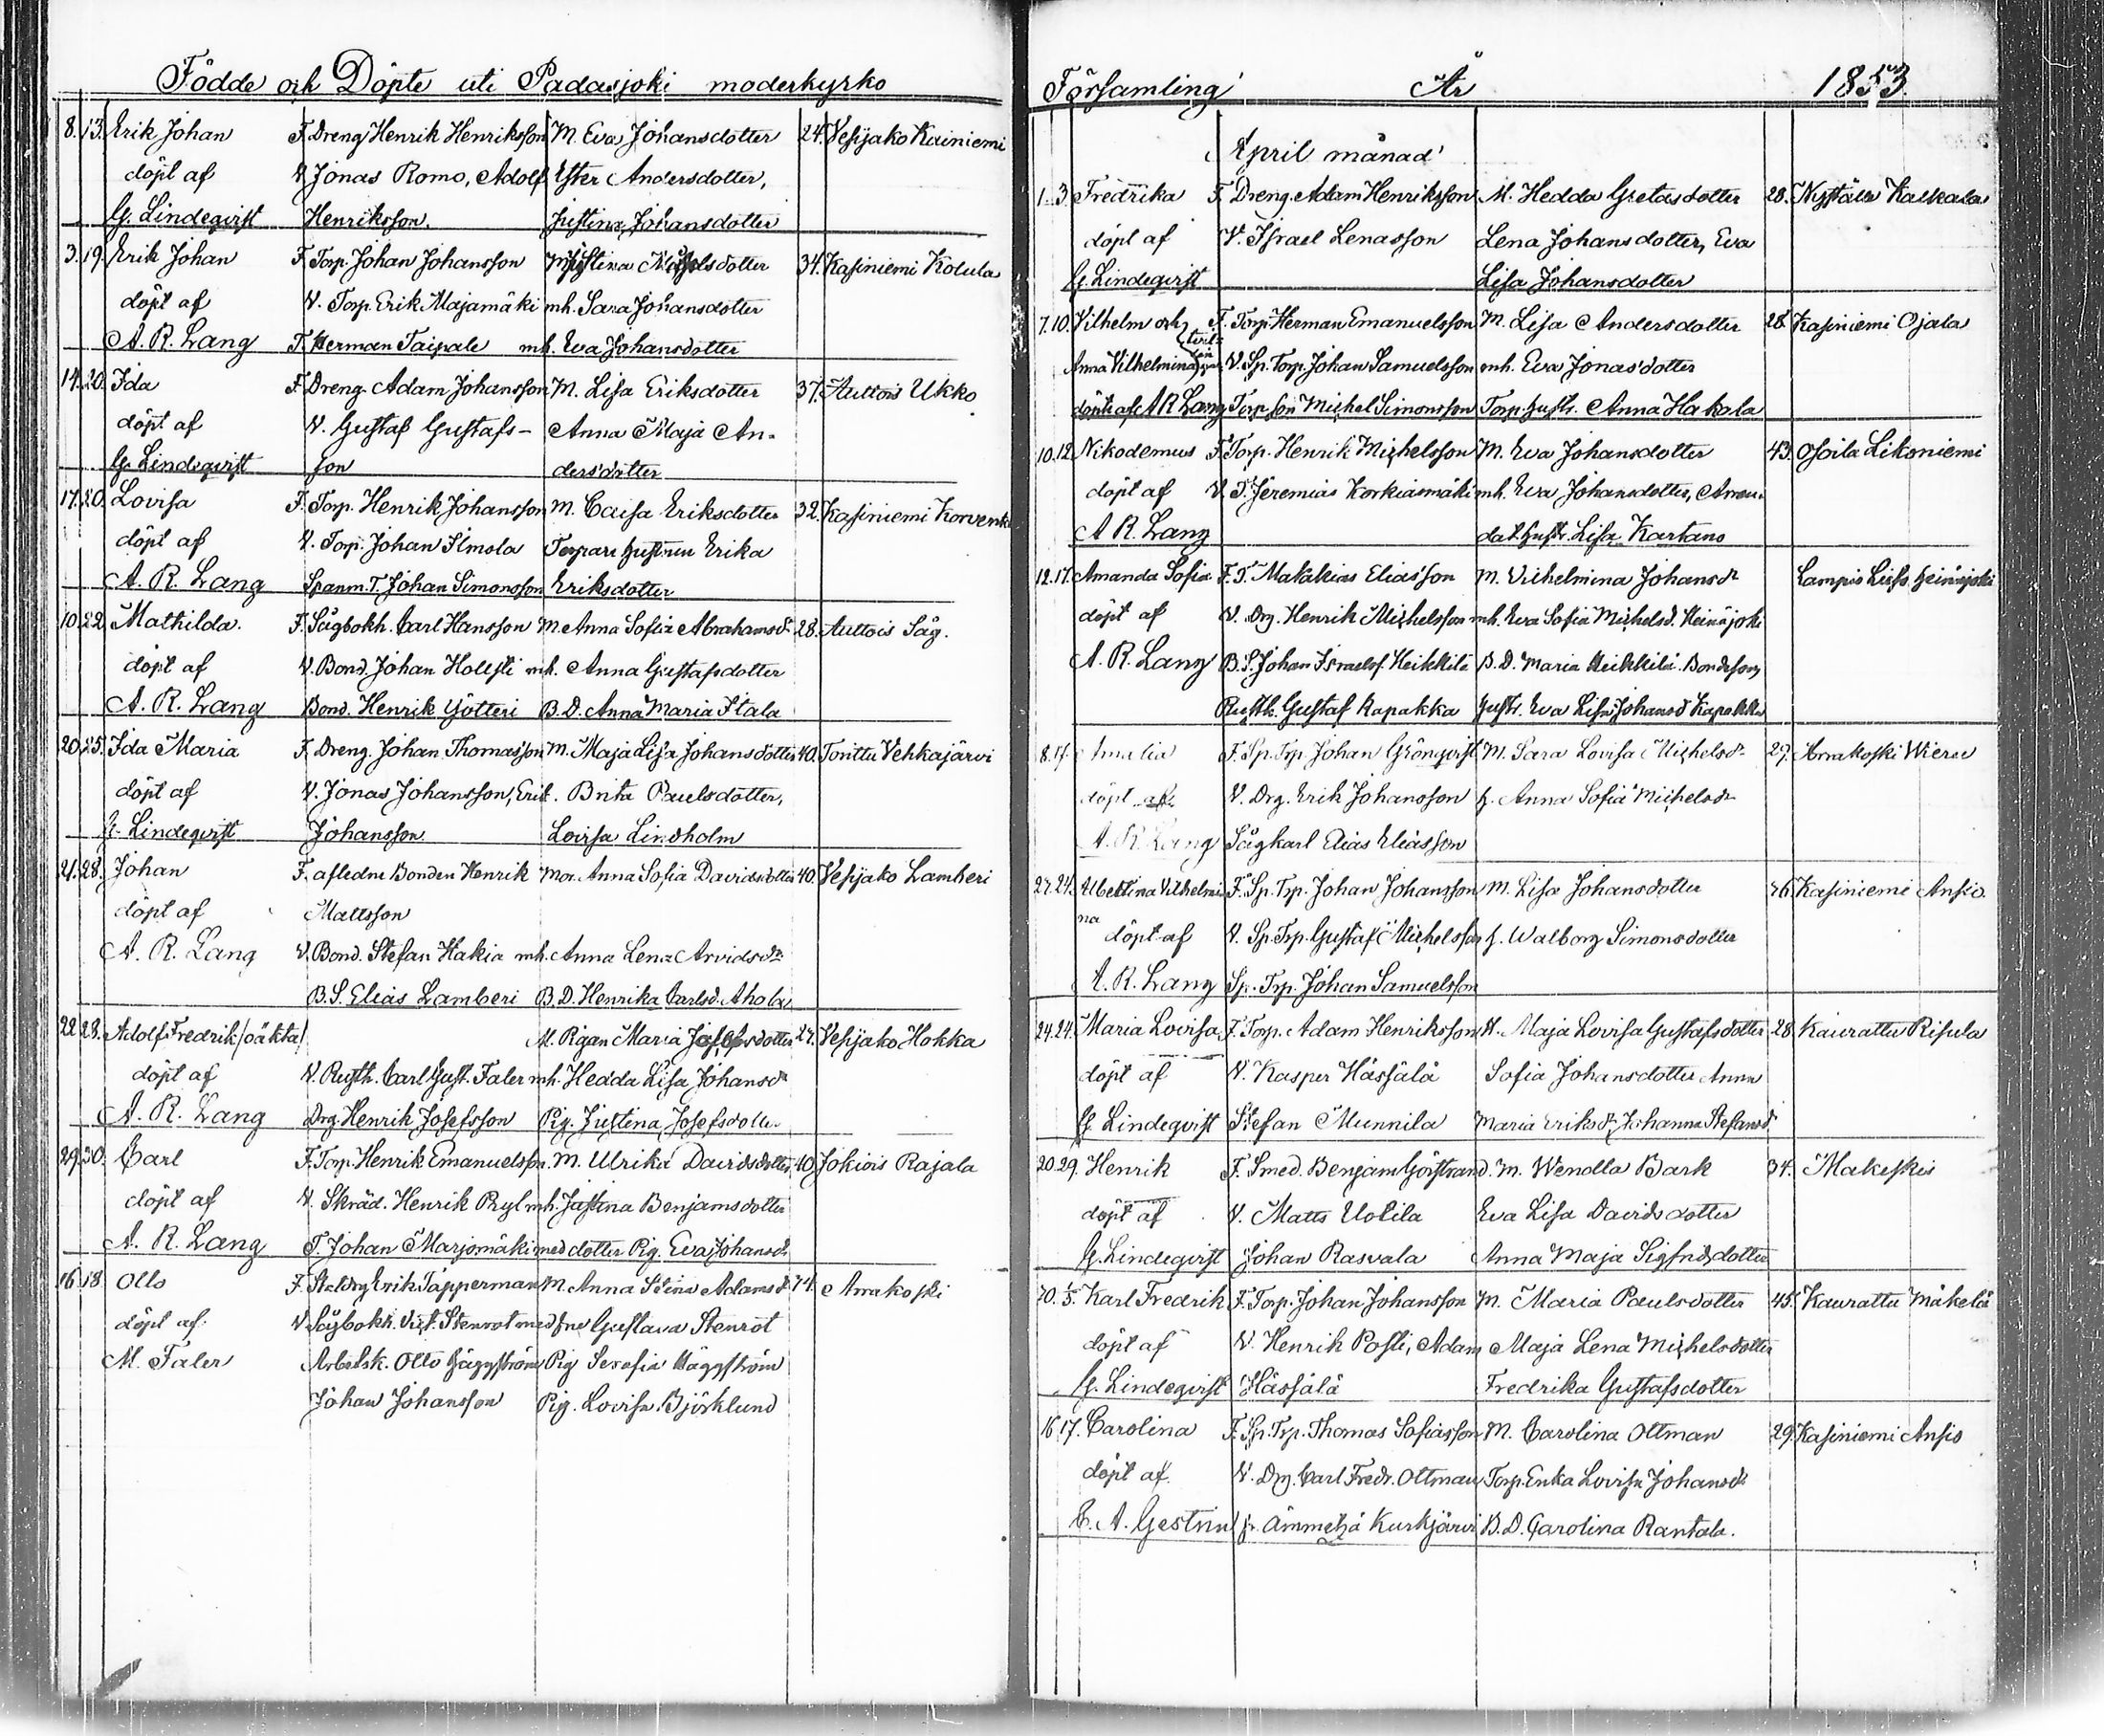 Födde och Döpte uti Padasjoki moderkyrko
8. 13. Erik Johan F. Dreng Henrik Henriksson M. Eva Johansdotter 24. Vesijako Kainiemi
döpt af V. Jonas Romo, Adolf Ester Andersdotter,
G. Lindeqvist Henriksson. Justina Johansdotter
3. 19. Erik Johan F. Torp. Johan Johansson 34. Kasiniemi Kolula
döpt af V. Torp. Erik Majamäki mh. Sara Johansdotter
A. R. Lang T. Herman Taipale mh. Eva Johansdotter
14. 20. Ida F. Dreng Adam Johansson M. Lisa Eriksdotter 37. Auttois Ukko
döpt af V. Gustaf Gustafs- Anna Maja An-
G. Lindeqvist son dersdotter
17. 20. Lovisa F. Torp. Henrik Johansson M. Caisa Eriksdotter 32. Kasiniemi Korvenk
döpt af V. Torp. Johan Ilmola Torpare hustrun Erika
A. R. Lang Spanm. T. Johan Simonsson Eriksdotter
10. 22. Mathilda. F. Sågbokh. Carl Hansson M. Anna Sofia Abrahamsdr 28. Auttois Såg.
döpt af V. Bond. Johan Hollsti mh. Anna Gustafsdotter
A. R. Lang Bond. Henrik Yötteri B. D. Anna Maria Itala
20. 25. Ida Maria F. Dreng. Johan Thomasson M. Maja Lisa Johansdotter 40. Torittu Vehkajärvi
döpt af V. Jonas Johansson, Erik. Brita Paulsdotter,
G. Lindeqvist Johansson. Lovisa Lindholm
21. 28. Johan F. afledne Bonden Henrik Mor. Anna Sofia Davidsdotter 40. Vesijako Lamberi
döpt af Mattsson
A. R. Lang V. Bond. Stefan Hakia mh. Anna Lena Arvidsdr
B. S. Elias Lamberi B. D. Henrika Carlsd. Ahola
22. 28. Adolf Fredrik /oäkta/ M. Pigan Maria Josefsdotter 27. Vesijako Hokka
döpt af V. Rusth. Carl Gust. Faler mh. Hedda Lisa Johansdr
A. R. Lang Drg. Henrik Josefsson Pig. Justina Josefsdotter
29. 30. Carl F. Torp. Henrik Emanuelsson. M. Ulrika Davidsdotter 40. Jokiois Rajala
döpt af V. Skräd. Henrik Ryl mh. Justina Benjamsdotter
A. R. Lang T. Johan Marjomäki med dotter Pig. Eva Johansdr
16. 18 Otto F. Staldrg Erik Tapperman M. Anna Stina Adamsdr 44. Arrakoski
döpt af. V. Sågbokh. Vict. Stenrot med fru Gustava Stenrot
M. Faler Arbetsk. Otto Häggström Pig Serafia Häggström
Johan Johansson Pig. Lovisa Björklund
Församling År 1853.
April månad
1. 3. Fredrika F. Dreng. Adam Henriksson M. Hedda Gretasdotter 28. Nyystölä Kaukala
döpt af V. Israel Lenasson Lena Johansdotter, Eva
G. Lindeqvist Lisa Johansdotter
7. 10. Vilhelm och F. Torp. Herman Emanuelsson M. Lisa Andersdotter 28. Kasiniemi Ojala
Anna Vilhelmina V. Sp. Torp. Johan Samuelsson mh. Eva Jonasdotter
döpte af A R Lang Torp. son Michel Simonsson Torp. hustr. Anna Hakala
10. 12. Nikodemus F. Torp. Henrik Michelsson M. Eva Johansdotter 43. Osoila Likoniemi
döpt af V. T. Jeremias Korkiamäki mh. Eva Johansdotter, Arren-
A R. Lang dat. hustr. Lisa Kartano
12. 17. Amanda Sofia F. T. Malakias Eliasson M. Vilhelmina Johansdr Lampis Lieso, Heinäjoki
döpt af V. Drg. Henrik Michelsson mh. Eva Sofia Michelsd. Heinäjoki
A. R. Lang B. S. Johan Israelsf. Heikkilä B. D. Maria Heikkilä. Bondeson,
Rusth. Gustaf Kapakka hustr. Eva Lisa Johansd Kapakka
8. 17. Amalia F. Sp. Trp. Johan Grönqvist M. Sara Lovisa Michelsdr 29. Arrakoski Wieru
döpt af V. Drg. Erik Johansson h. Anna Sofia Michelsdr
A. R. Lang Sågkarl Elias Eliasson
27. 24. Albertina Vilhelmi F. Sp. Trp. Johan Johansson M. Lisa Johansdotter 36. Kasiniemi Ansio.
na
döpt af V. Sp. Trp. Gustaf Michelsson h. Walborg Simonsdotter
A. R. Lang Sp. Trp. Johan Samuelsson
24. 24. Maria Lovisa F. Torp. Adam Henriksson M. Maja Lovisa Gustafsdotter 28 Kaurattu Risula
döpt af V. Kasper Hässälä Sofia Johansdotter Anna
G. Lindeqvist Stefan Munnila Maria Eriksdr, Johanna Stefansd.
20. 29. Henrik F. Smed. Benjam Görstrand. M. Wendla Bark 34. Makeskis
döpt af V. Matts Uotila Eva Lisa Davidsdotter
G. Lindeqvist Johan Rasvala Anna Maja Sigfridsdotter
30. 1/5. Karl Fredrik F. Torp. Johan Johansson M. Maria Paulsdotter 45. Kaurattu Mäkelä
döpt af V. Henrik Posti, Adam Maja Lena Michelsdotter
G. Lindeqvist Hässälä Fredrika Gustafsdotter
16 17. Carolina F. Sp. Trp. Thomas Sofiasson M. Carolina Ottman 29. Kasiniemi Ansio
döpt af. V. Drg. Carl Fredr. Ottman Torp. Enka Lovisa Johansdr
E. A. Gestrin fr. Ämmelä Kurkjärvi B. D. Carolina Rantala.